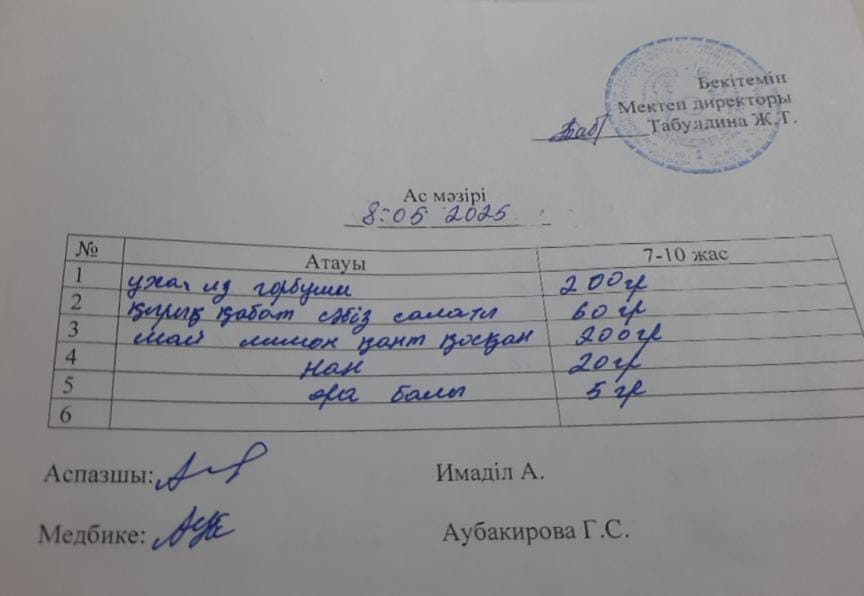 Бекітемін
Мектеп директоры
Табулдина Ж.Т.
Ас мәзірі
8.05 2025
№ Атауы 7-10 жас
1 уха из горбуши 200гр
2 қырық қабат сәбіз салаты 60 гр
3 шай лимон қант қосқан 200гр
4 нан 20гр
5 ара балы 5 гр
6
Аспазшы: Имаділ А.
Медбике: Аубакирова Г.С.